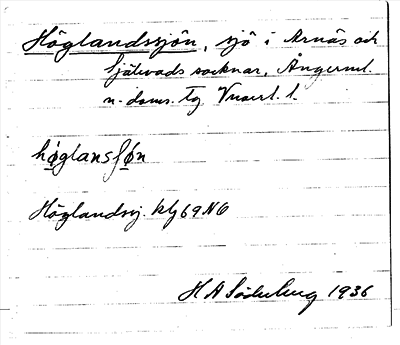 Höglandssjön, sjö i Arnäs och
Själevads socknar, Ångerml.
n. doms. Tg
høglansʃøn
Höglandssj. kbl 69 NO
H A Söderberg 1936